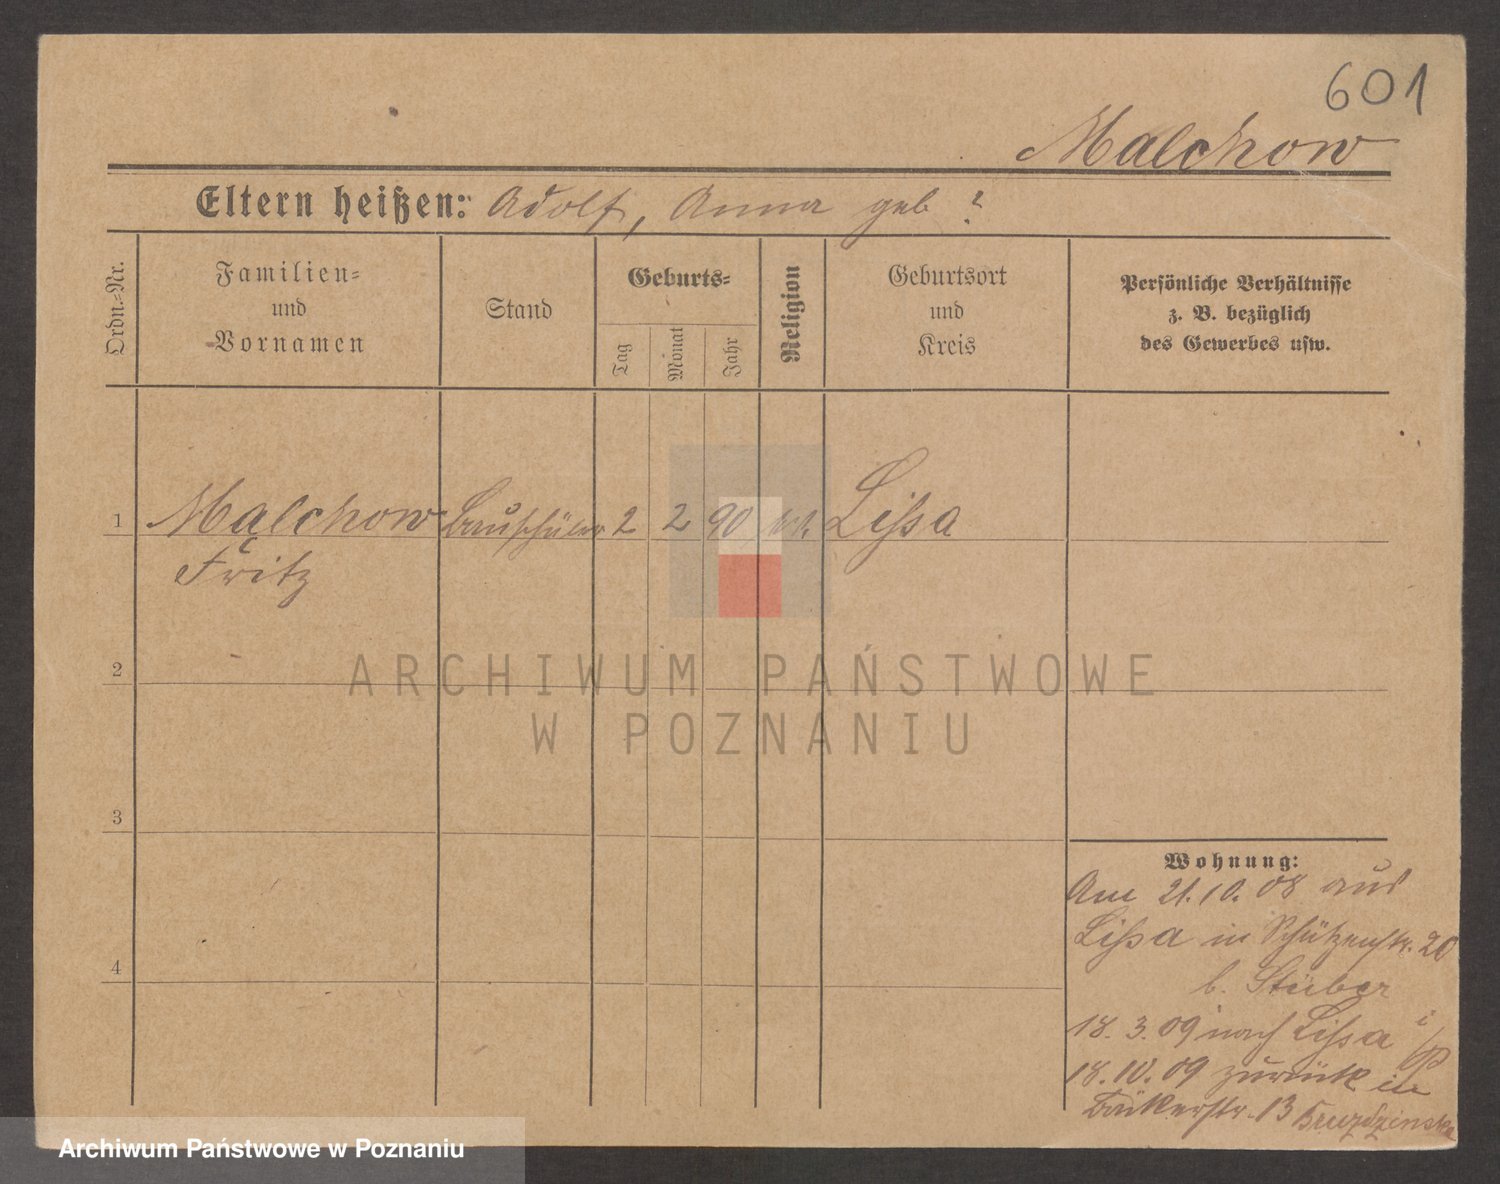 601
Malchow
Eltern heißen: Adolf, Anna geb ?
Ordn.-Nr.
Familien- und Vornamen
Stand
Geburts-
Tag
Monat
Jahr
Religion
Geburtsort und Kreis
Persönliche Verhältnisse
z. B. bezüglich
des Gewerbes usw.
1 Malchow Bauschüler 2 2 90 Lissa
Fritz
2
3
4
Wohnung:
Am 21.10.08 aus
Lissa in Schützenstr. 20
b. Stüber
18.3.09 nach Lissa i/P
18.10.09 zurück in
Bäkerstr. 13
ARCHIWUM PAŃSTWOWE
W POZNANIU
Archiwum Państwowe w Poznaniu